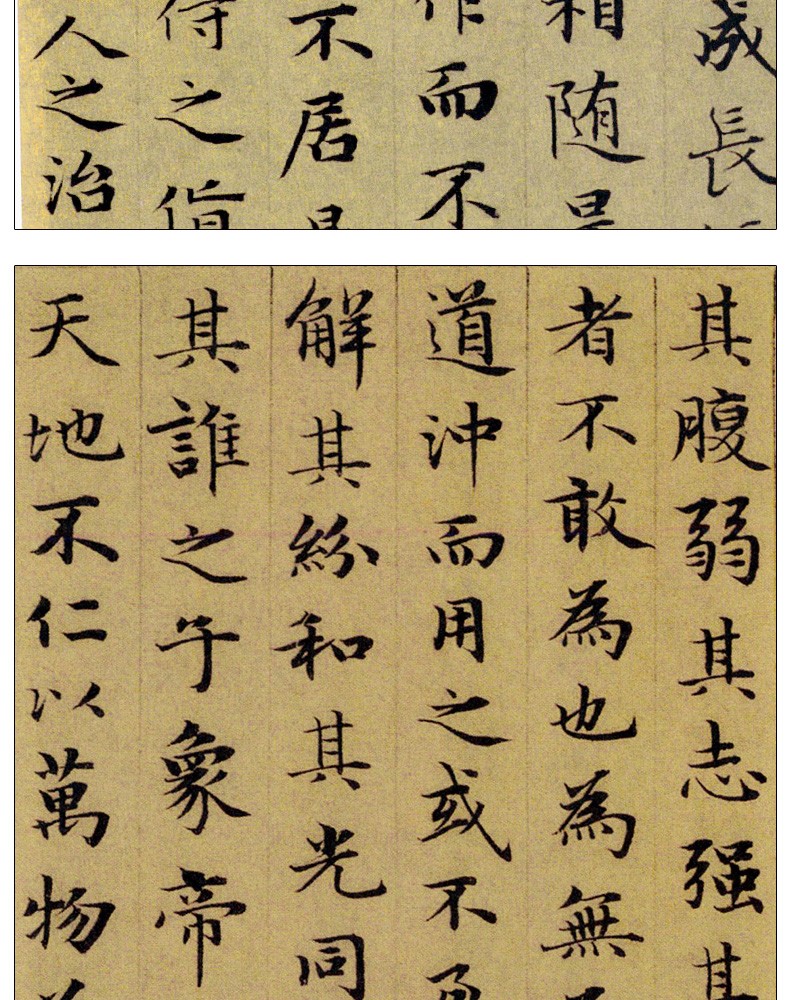 成長
相随是
作而不
不居是
侍之值
人之治
其腹弱其志强其
者不敢為也為無
道沖而用之或不
解其紛和其光同
其誰之子象帝
天地不仁以萬物